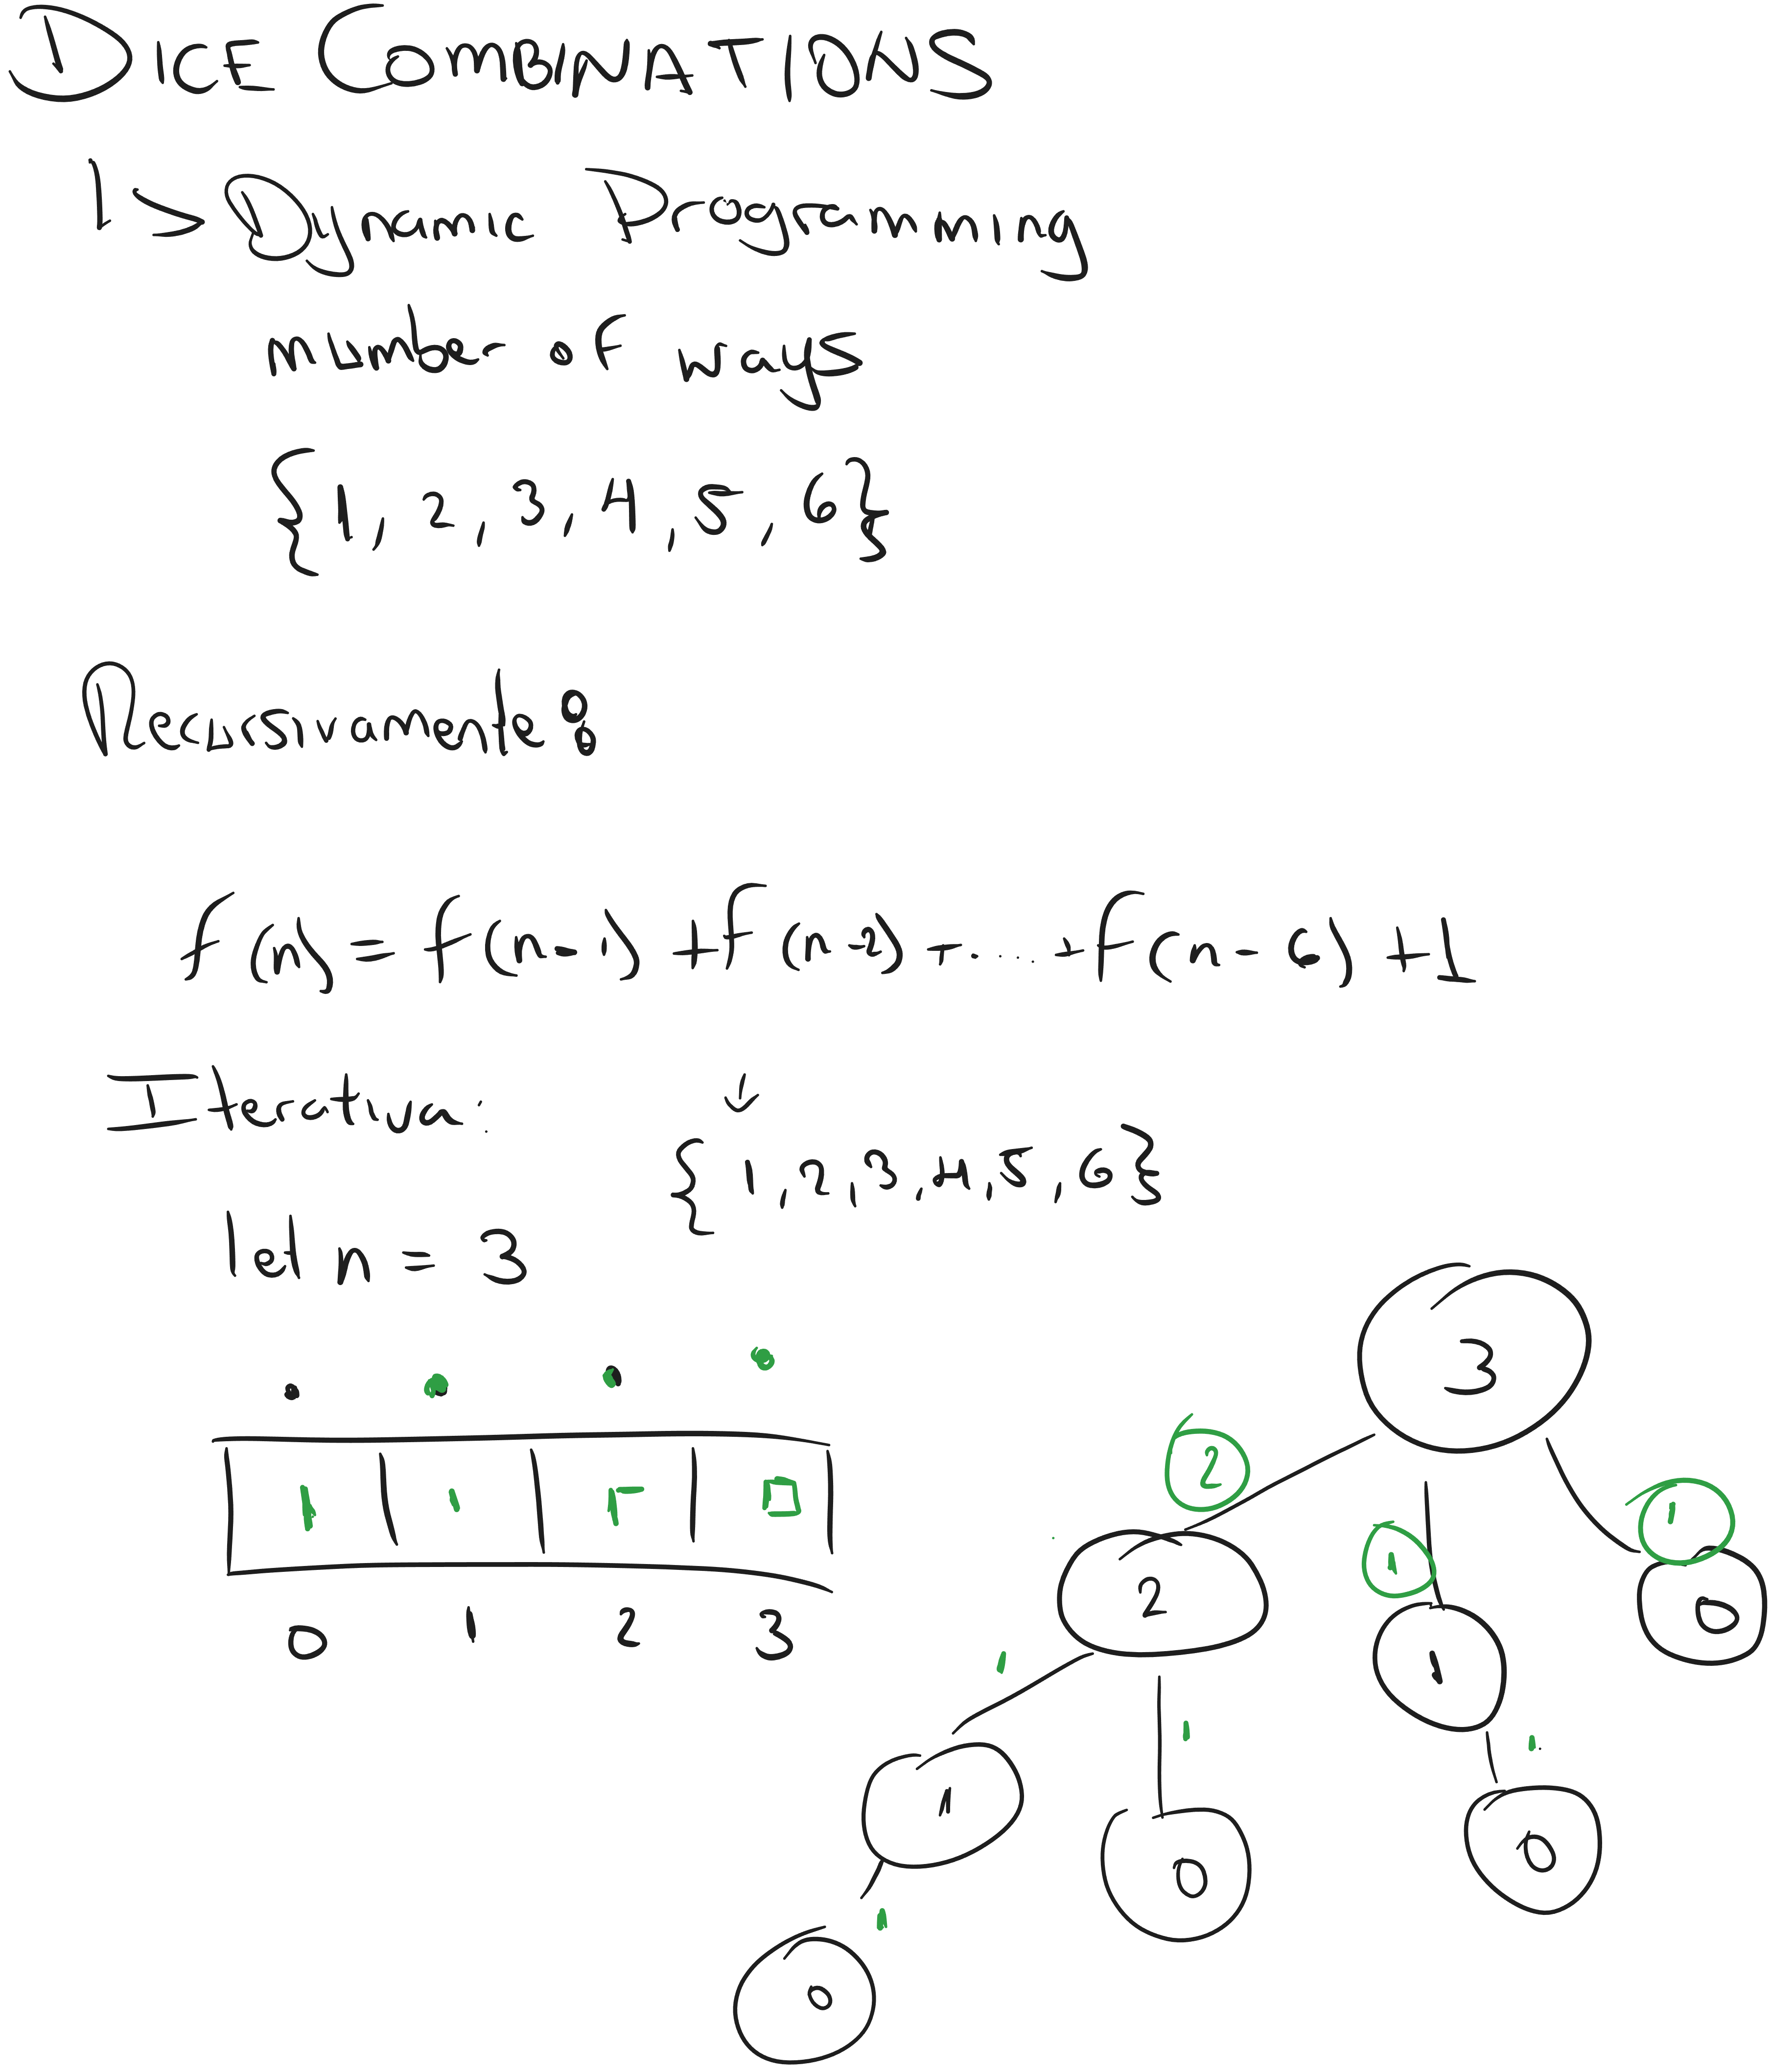 DICE COMBINATIONS
|> Dynamic Programming
number of ways
{1, 2, 3, 4, 5, 6}
Recursivamente:
f(n) = f(n-1) + f(n-2) + .... + f(n-6) + 1
Iterativa: ↓
{1, 2, 3, 4, 5, 6}
let n = 3
3
2
1
1
1
0
2
1
0 1 2 3
1
1
1
1
0
0
1
0